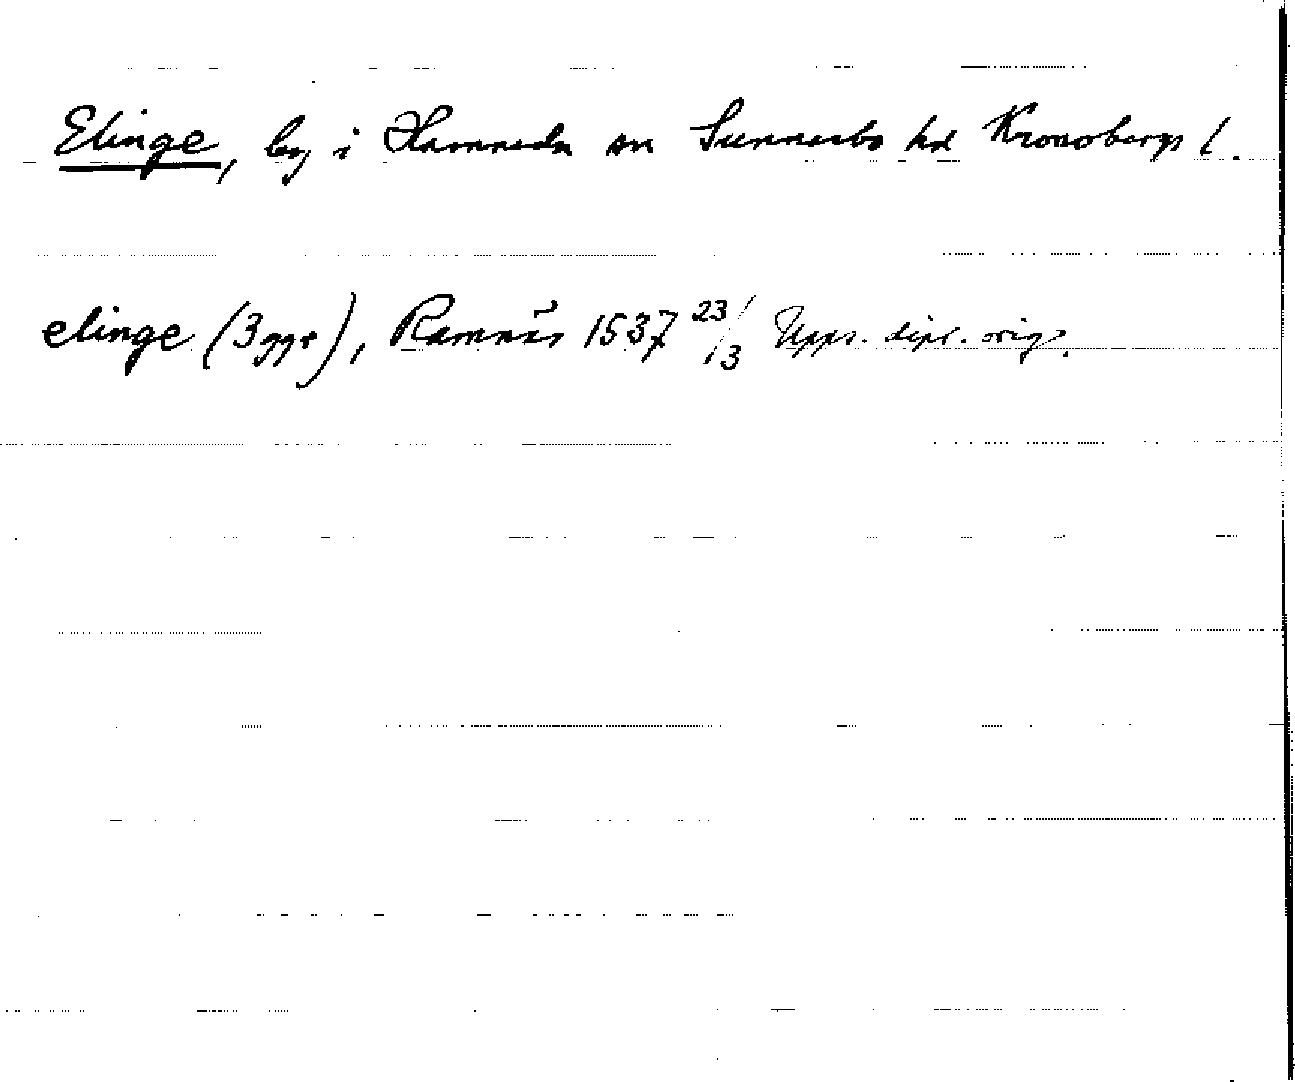 Elinge, by i Hamneda sn Sunnerbo hd Kronobergs l.
elinge (3 ggr), Ramnäs 1537 23/3 Upps. dipl. orig.